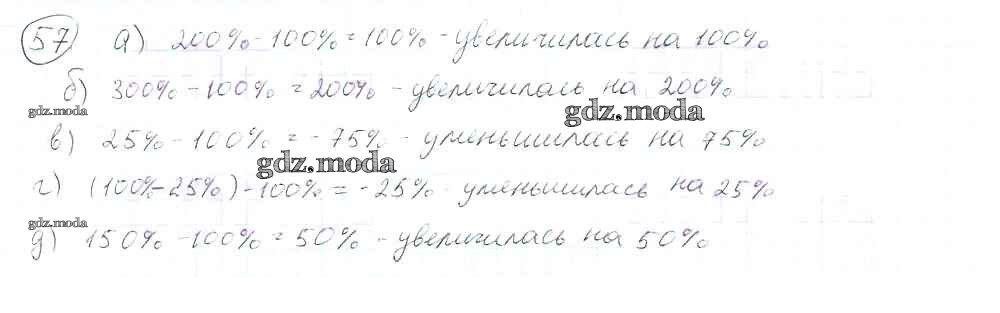 57 а) 200% - 100% = 100% - увеличилась на 100%
б) 300% - 100% = 200% - увеличилась на 200%
gdz.moda
gdz.moda
в) 25% - 100% = - 75% - уменьшилась на 75%
gdz.moda
г) (100% - 25%) - 100% = - 25% - уменьшилась на 25%
gdz.moda
д) 150% - 100% = 50% - увеличилась на 50%